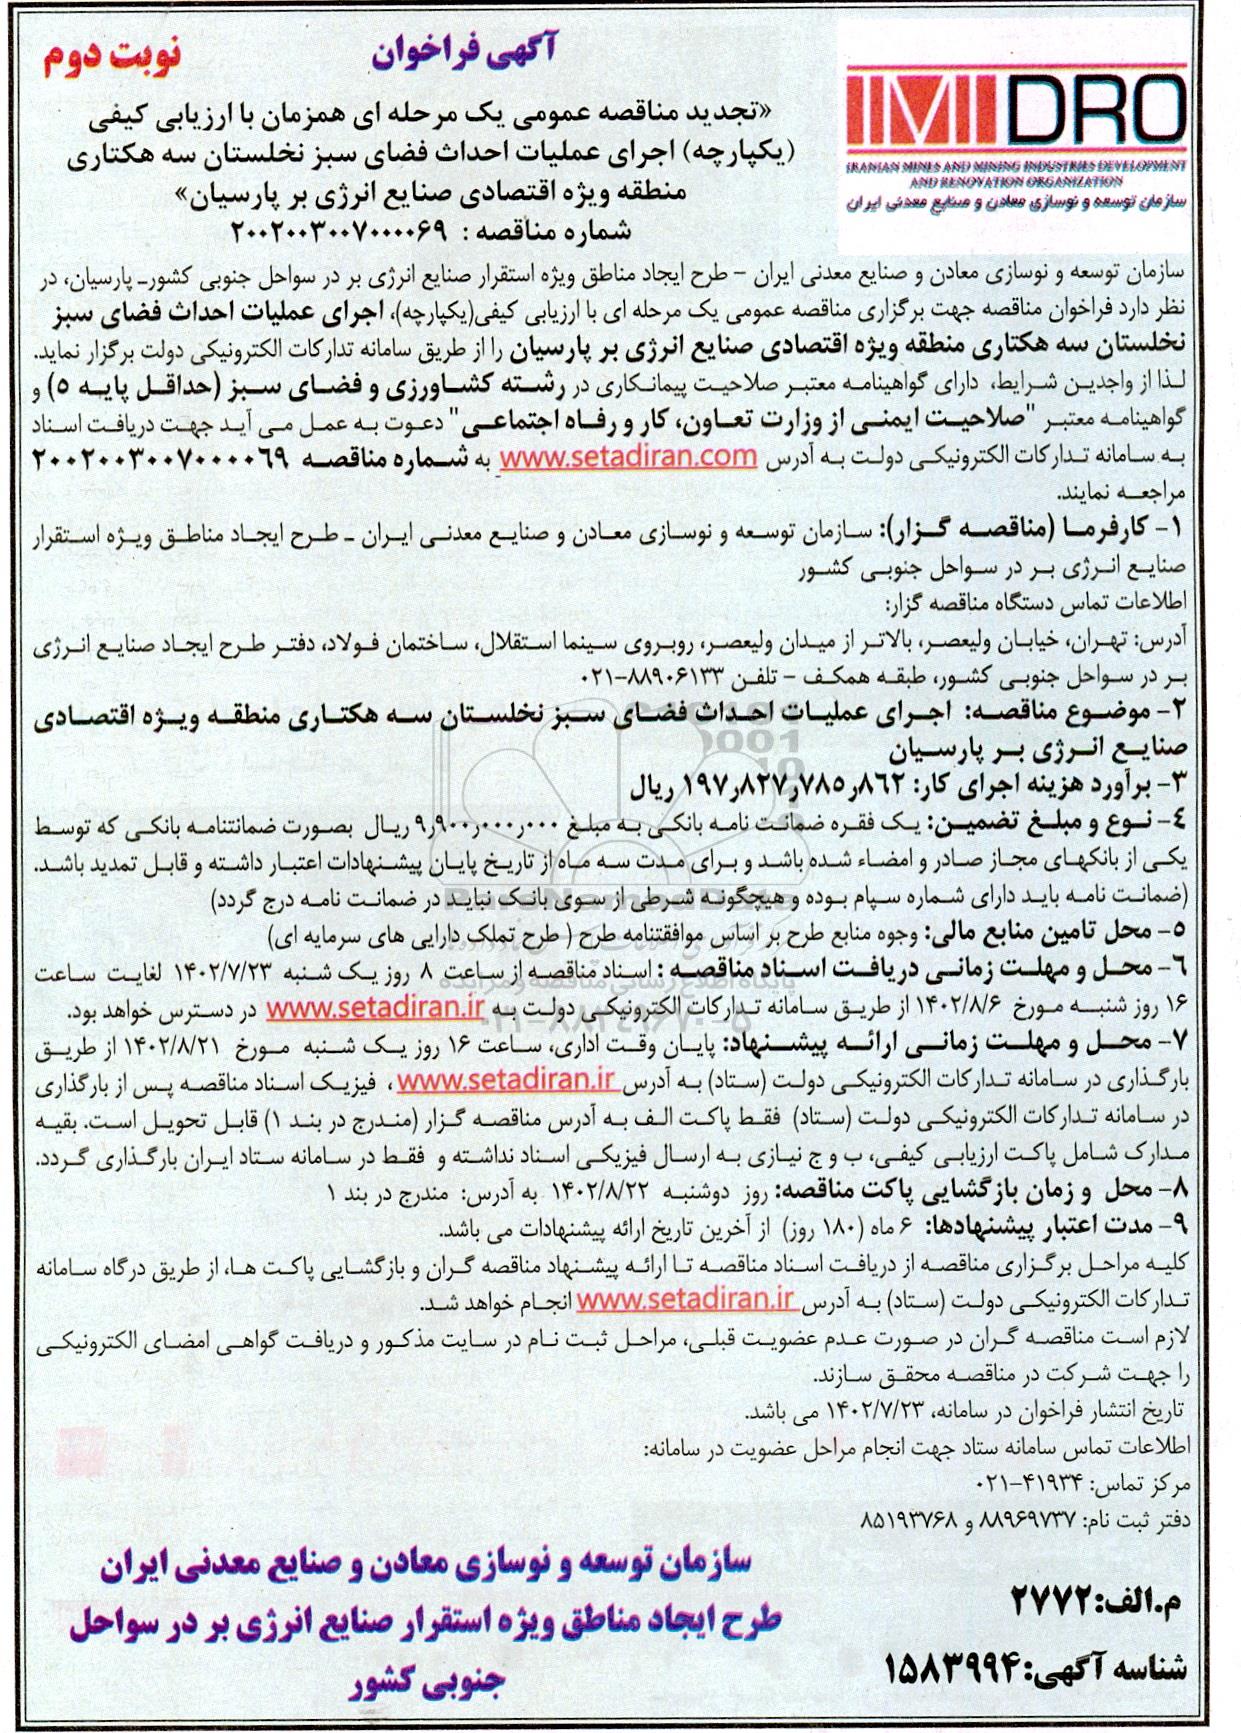 آگهی فراخوان
نوبت دوم
IMIDRO
IRANIAN MINES AND MINING INDUSTRIES DEVELOPMENT
AND RENOVATION ORGANIZATION
سازمان توسعه و نوسازی معادن و صنایع معدنی ایران
«تجدید مناقصه عمومی یک مرحله ای همزمان با ارزیابی کیفی
(یکپارچه) اجرای عملیات احداث فضای سبز نخلستان سه هکتاری
منطقه ویژه اقتصادی صنایع انرژی بر پارسیان»
شماره مناقصه : ۲۰۰۲۰۰۳۰۰۷۰۰۰۰۶۹
سازمان توسعه و نوسازی معادن و صنایع معدنی ایران – طرح ایجاد مناطق ویژه استقرار صنایع انرژی بر در سواحل جنوبی کشور- پارسیان، در
نظر دارد فراخوان مناقصه جهت برگزاری مناقصه عمومی یک مرحله ای با ارزیابی کیفی(یکپارچه)، اجرای عملیات احداث فضای سبز
نخلستان سه هکتاری منطقه ویژه اقتصادی صنایع انرژی بر پارسیان را از طریق سامانه تدارکات الکترونیکی دولت برگزار نماید.
لذا از واجدین شرایط، دارای گواهینامه معتبر صلاحیت پیمانکاری در رشته کشاورزی و فضای سبز (حداقل پایه ۵) و
گواهینامه معتبر "صلاحیت ایمنی از وزارت تعاون، کار و رفاه اجتماعی" دعوت به عمل می آید جهت دریافت اسناد
به سامانه تدارکات الکترونیکی دولت به آدرس www.setadiran.com به شماره مناقصه ۲۰۰۲۰۰۳۰۰۷۰۰۰۰۶۹
مراجعه نمایند.
۱- کارفرما (مناقصه گزار): سازمان توسعه و نوسازی معادن و صنایع معدنی ایران - طرح ایجاد مناطق ویژه استقرار
صنایع انرژی بر در سواحل جنوبی کشور
اطلاعات تماس دستگاه مناقصه گزار:
آدرس: تهران، خیابان ولیعصر، بالاتر از میدان ولیعصر، روبروی سینما استقلال، ساختمان فولاد، دفتر طرح ایجاد صنایع انرژی
بر در سواحل جنوبی کشور، طبقه همکف – تلفن ۸۸۹۰۶۱۳۳-۰۲۱
۲- موضوع مناقصه: اجرای عملیات احداث فضای سبز نخلستان سه هکتاری منطقه ویژه اقتصادی
صنایع انرژی بر پارسیان
۳- برآورد هزینه اجرای کار: ۱۹۷٫۸۲۷٫۷۸۵٫۸۶۲ ریال
۴- نوع و مبلغ تضمین: یک فقره ضمانت نامه بانکی به مبلغ ۹٫۹۰۰٫۰۰۰٫۰۰۰ ریال بصورت ضمانتنامه بانکی که توسط
یکی از بانکهای مجاز صادر و امضاء شده باشد و برای مدت سه ماه از تاریخ پایان پیشنهادات اعتبار داشته و قابل تمدید باشد.
(ضمانت نامه باید دارای شماره سپام بوده و هیچگونه شرطی از سوی بانک نباید در ضمانت نامه درج گردد)
۵- محل تامین منابع مالی: وجوه منابع طرح بر اساس موافقتنامه طرح ( طرح تملک دارایی های سرمایه ای)
۶- محل و مهلت زمانی دریافت اسناد مناقصه : اسناد مناقصه از ساعت ۸ روز یک شنبه ۱۴۰۲/۷/۲۳ لغایت ساعت
۱۶ روز شنبه مورخ ۱۴۰۲/۸/۶ از طریق سامانه تدارکات الکترونیکی دولت به www.setadiran.ir در دسترس خواهد بود.
۷- محل و مهلت زمانی ارائه پیشنهاد: پایان وقت اداری، ساعت ۱۶ روز یک شنبه مورخ ۱۴۰۲/۸/۲۱ از طریق
بارگذاری در سامانه تدارکات الکترونیکی دولت (ستاد) به آدرس www.setadiran.ir ، فیزیک اسناد مناقصه پس از بارگذاری
در سامانه تدارکات الکترونیکی دولت (ستاد) فقط پاکت الف به آدرس مناقصه گزار (مندرج در بند ۱) قابل تحویل است. بقیه
مدارک شامل پاکت ارزیابی کیفی، ب و ج نیازی به ارسال فیزیکی اسناد نداشته و فقط در سامانه ستاد ایران بارگذاری گردد.
۸- محل و زمان بازگشایی پاکت مناقصه: روز دوشنبه ۱۴۰۲/۸/۲۲ به آدرس: مندرج در بند ۱
۹- مدت اعتبار پیشنهادها: ۶ ماه (۱۸۰ روز) از آخرین تاریخ ارائه پیشنهادات می باشد.
کلیه مراحل برگزاری مناقصه از دریافت اسناد مناقصه تا ارائه پیشنهاد مناقصه گران و بازگشایی پاکت ها، از طریق درگاه سامانه
تدارکات الکترونیکی دولت (ستاد) به آدرس www.setadiran.ir انجام خواهد شد.
لازم است مناقصه گران در صورت عدم عضویت قبلی، مراحل ثبت نام در سایت مذکور و دریافت گواهی امضای الکترونیکی
را جهت شرکت در مناقصه محقق سازند.
تاریخ انتشار فراخوان در سامانه، ۱۴۰۲/۷/۲۳ می باشد.
اطلاعات تماس سامانه ستاد جهت انجام مراحل عضویت در سامانه:
مرکز تماس: ۴۱۹۳۴-۰۲۱
دفتر ثبت نام: ۸۸۹۶۹۷۳۷ و ۸۵۱۹۳۷۶۸
سازمان توسعه و نوسازی معادن و صنایع معدنی ایران
طرح ایجاد مناطق ویژه استقرار صنایع انرژی بر در سواحل
جنوبی کشور
م.الف:۲۷۷۲
شناسه آگهی:۱۵۸۳۹۹۴